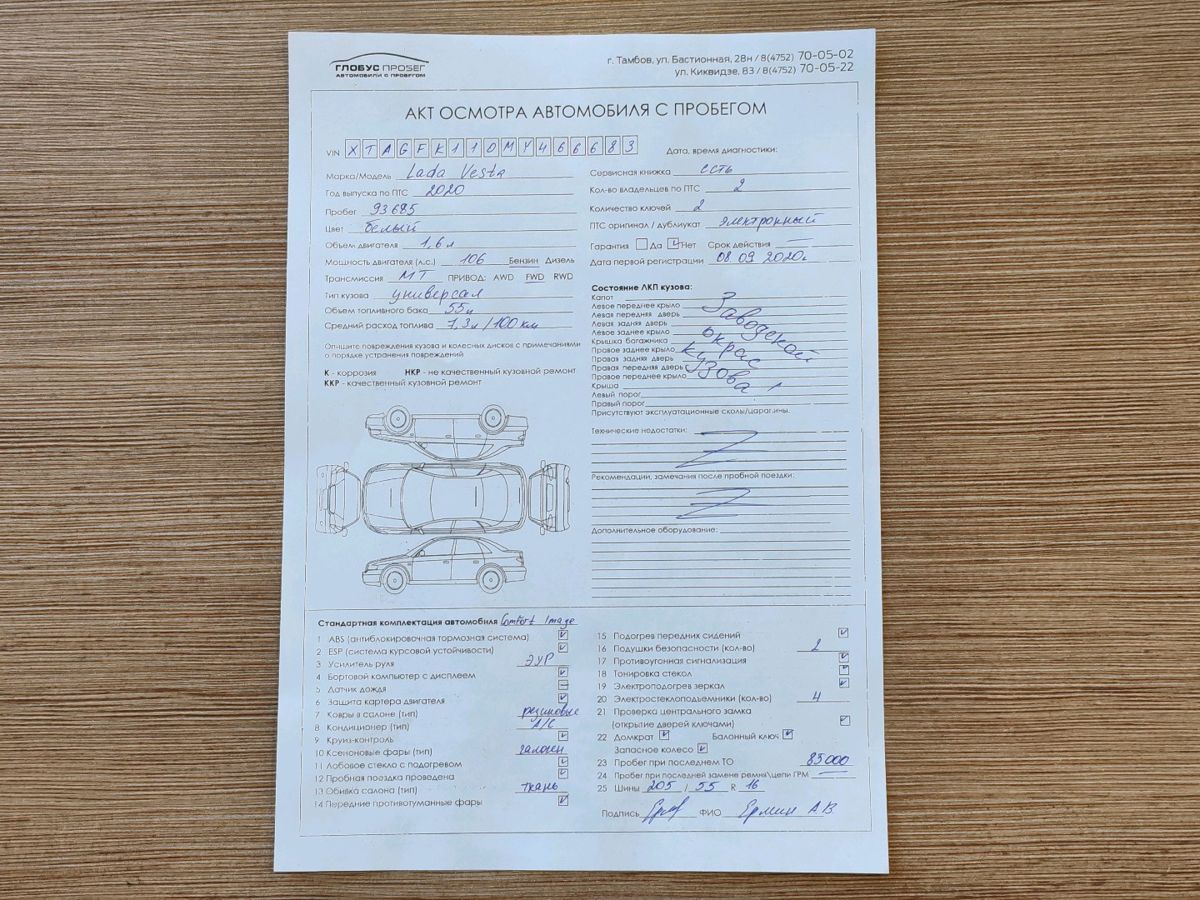 ГЛОБУС ПРОБЕГ
АВТОМОБИЛИ С ПРОБЕГОМ
г. Тамбов, ул. Бастионная, 28н / 8(4752) 70-05-02
ул. Киквидзе, 83 / 8(4752) 70-05-22
АКТ ОСМОТРА АВТОМОБИЛЯ С ПРОБЕГОМ
VIN XTAGFK110MY466683
Дата, время диагностики:
Марка/Модель Lada Vesta
Год выпуска по ПТС 2020
Пробег 93685
Цвет белый
Объем двигателя 1,6 л
Мощность двигателя (л.с.) 106 Бензин Дизель
Трансмиссия МТ ПРИВОД: AWD FWD RWD
Тип кузова универсал
Объем топливного бака 55л
Средний расход топлива 7,3л/100км
Опишите повреждения кузова и колесных дисков с примечаниями
о порядке устранения повреждений
К - коррозия НКР - не качественный кузовной ремонт
ККР - качественный кузовной ремонт
Сервисная книжка есть
Кол-во владельцев по ПТС 2
Количество ключей 2
ПТС оригинал / дубликат электронный
Гарантия Да Нет Срок действия —
Дата первой регистрации 08 09 2020г
Состояние ЛКП кузова:
Капот
Левое переднее крыло
Левая передняя дверь
Левая задняя дверь
Левое заднее крыло
Крышка багажника
Правое заднее крыло
Правая задняя дверь
Правая передняя дверь
Правое переднее крыло
Крыша
Левый порог
Правый порог
Заводской
окрас
кузова !
Присутствуют эксплуатационные сколы/царапины.
Технические недостатки:
Рекомендации, замечания после пробной поездки:
Дополнительное оборудование:
Стандартная комплектация автомобиля Comfort Image
1 ABS (антиблокировочная тормозная система)
2 ESP (система курсовой устойчивости)
3 Усилитель руля ЭУР
4 Бортовой компьютер с дисплеем
5 Датчик дождя
6 Защита картера двигателя
7 Ковры в салоне (тип) резиновые
8 Кондиционер (тип) A/C
9 Круиз-контроль
10 Ксеноновые фары (тип) галоген
11 Лобовое стекло с подогревом
12 Пробная поездка проведена
13 Обивка салона (тип) ткань
14 Передние противотуманные фары
15 Подогрев передних сидений
16 Подушки безопасности (кол-во) 2
17 Противоугонная сигнализация
18 Тонировка стекол
19 Электроподогрев зеркал
20 Электростеклоподъемники (кол-во) 4
21 Проверка центрального замка
(открытие дверей ключами)
22 Домкрат Балонный ключ
Запасное колесо
23 Пробег при последнем ТО 85000
24 Пробег при последней замене ремня\цепи ГРМ —
25 Шины 205 / 55 R 16
Подпись ФИО Ермин А.В.